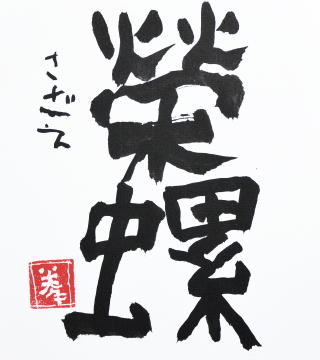 榮螺
さざえ